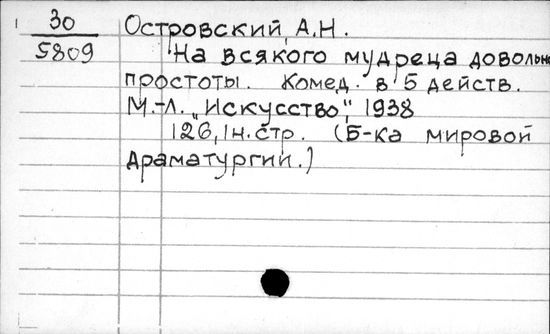 30
5809
Островский, А.Н.
На всякого мудреца довольно
простоты. Комед. в 5 действ.
М.-Л. „Искусство", 1938
126, 1н. стр. (Б-ка мировой
драматургии.)